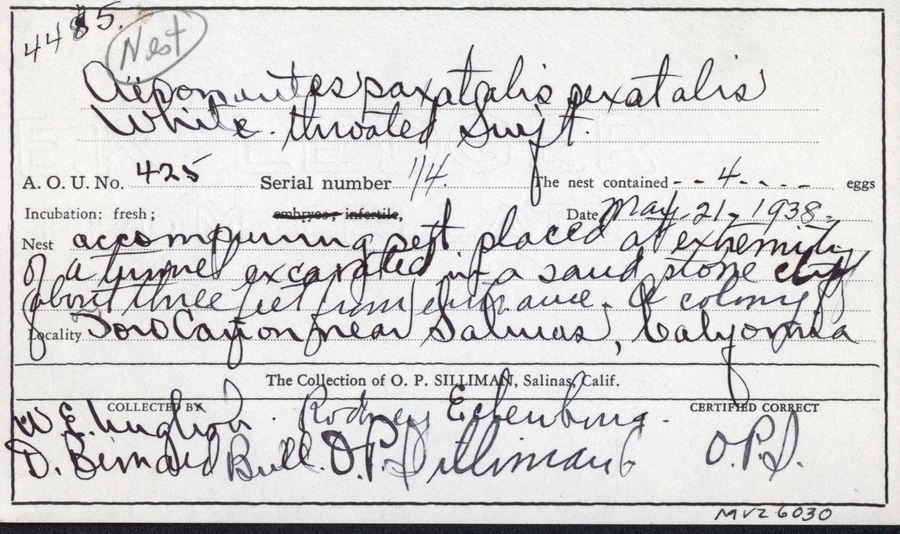 4485.
Nest
Aeronautes saxatalis sexatalis
White. throated Swift.
A. O. U. No. 425 Serial number 1/4. The nest contained - - 4 - . - - eggs
Incubation: fresh; embryos; infertile, Date May. 21, 1938.
Nest accompuning sett placed at extremity
of a tunnel excavated in a sand stone cliff
about three feet from entrance. A colony
Locality Toro Canyon near Salinas, California
The Collection of O. P. SILLIMAN, Salinas, Calif.
COLLECTED BY CERTIFIED CORRECT
W E. Unglish. Rodney
D. Bernard Bull. O.P. Silliman O.P.S.
MVZ 6030